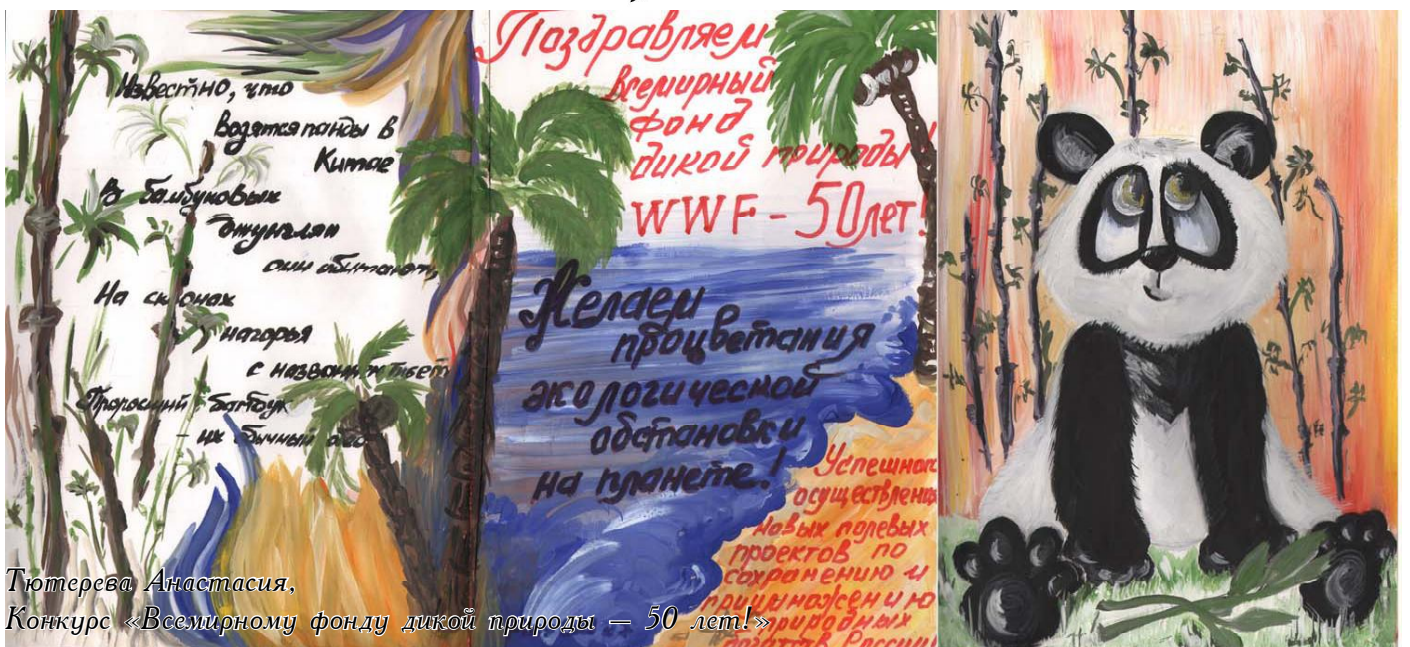 Известно, что
водятся панды в
Китае
В бамбуковых
джунглях
они обитают,
На склонах
нагорья
с названием Тибет
Проросший бамбук
- их обычный обед
Поздравляем
всемирный
фонд
дикой природы!
WWF - 50 лет!
Желаем
процветания
экологической
обстановки
на планете!
Успешного
осуществления
новых полевых
проектов по
сохранению и
приумножению
природных
богатств России!
Тютерева Анастасия,
Конкурс «Всемирному фонду дикой природы – 50 лет!»